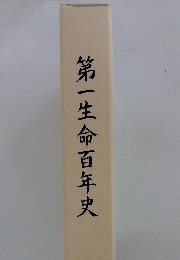 第一生命百年史